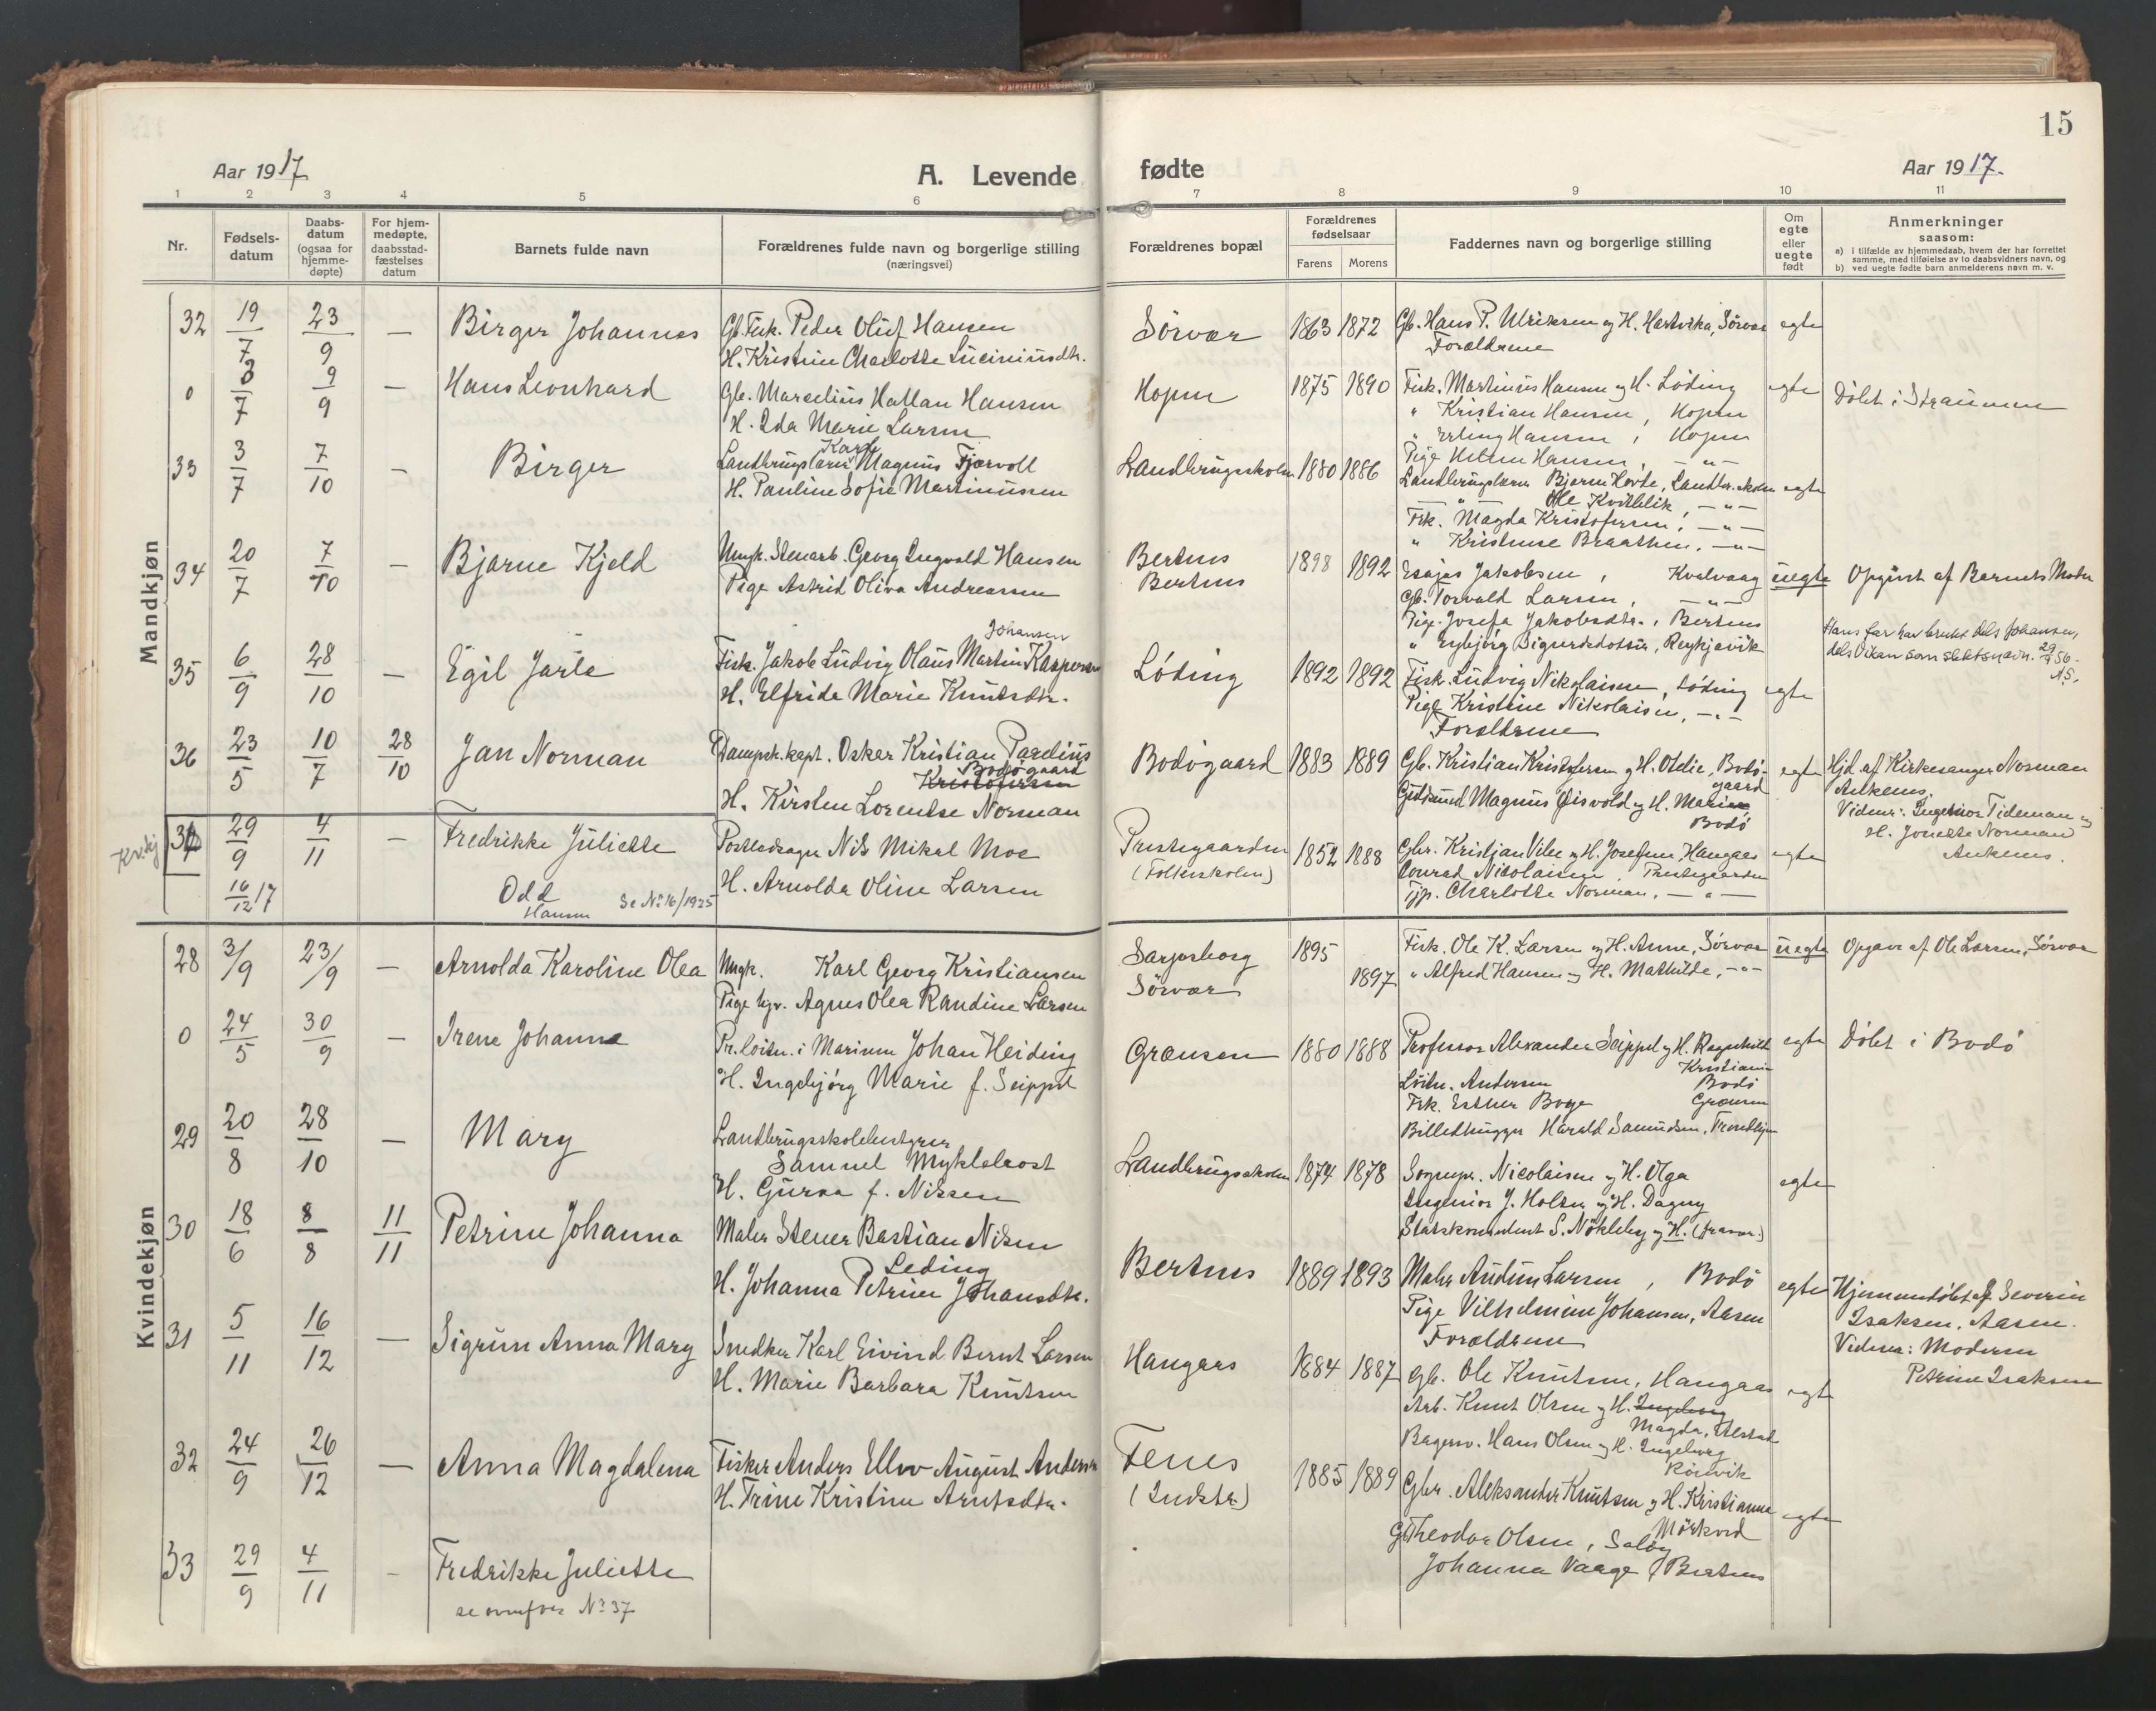 15
Aar 1917
A. Levende fødte
Aar 1917.
1 2 3 4 5 6 7 8 9 10 11
Nr.
Fødsels-
datum
Daabs-
datum
(ogsaa for
hjemme-
døpte)
For hjem-
medøpte,
daabsstad-
fæstelses
datum
Barnets fulde navn
Forældrenes fulde navn og borgerlige stilling
(næringsvei)
Forældrenes bopæl
Forældrenes
fødselsaar
Farens Morens
Faddernes navn og borgerlige stilling
Om
egte
eller
uegte
født
Anmerkninger
saasom:
a) i tilfælde av hjemmedaab, hvem der har forrettet
samme, med tilføielse av to daabsvidners navn, og
b) ved uegte fødte barn anmelderens navn m. v.
Mandkjøn
32 19/7 23/9 — Birger Johannes
Gb. Fisk. Peder Oluf Hansen
H. Kristine Charlotte Luciniusdtr.
Sörvær 1863 1872
Gb. Hans P. Ulriksen og H. Hartvika, Sörvær
Forældrene
egte
0 3/7 9/9 — Hans Leonhard
Gb. Marcelius Hallan Hansen
H. Ida Marie Larsen
Hopen 1875 1890
Fisk. Martinus Hansen og H. Löding
" Kristian Hansen, Hopen
" Erling Hansen, Hopen
Pige Helene Hansen, — " —
egte
Döbt i Straumen
33 3/7 7/10 — Birger
Landbrugslærer Karl Magnus Fjærvoll
H. Pauline Sofie Martinussen
Landbrugsskolen 1880 1886
Landbrugslærer Bjarne Hovde, Landbr.skolen
— " — Ole Kvitblik, — " —
Frk. Magda Kristofersen, — " —
" Kristense Braathen, — " —
egte
34 20/7 7/10 — Bjarne Kjeld
Ungk. Stenarb. Georg Ingvald Hansen
Pige Astrid Oliva Andreassen
Bertnes
Bertnes
1898 1892
Esajas Jakobsen, Kvalvaag
Gb. Torvald Larsen, — " —
Pige Josefa Jakobsdtr., Bertnes
" Eybjörg Sigurdsdottir, Reykjavik
uegte
Opgivet af Barnets Moder
35 6/9 28/10 — Egil Jarle
Johansen
Fisk. Jakob Ludvig Olaus Martin Kaspersen
H. Elfrida Marie Knutsdtr.
Löding 1892 1892
Fisk. Ludvig Nikolaisen, Löding
Pige Kristine Nikolaisen, — " —
Forældrene
egte
Hans far har brukt dels Johansen,
dels Vikan som slektsnavn. 29/9 56.
N.S.
36 23/5 10/7 28/10 Jan Norman
Dampsk.kapt. Oskar Kristian Pardius
Bodøgaard
Kristofersen
H. Kirsten Lorentse Norman
Bodögaard 1883 1889
Gb. Kristian Kristofersen og H. Otelie, Bodö-
gaard
Guldsmed Magnus Öisvold og H. Marie
Bodö
egte
Hjd. af Kirkesanger Norman
Ankenes.
Vidner: Ingeniör Tideman og
H. Jonette Norman
Ankenes.
Kv.kj
37 29/9 4/11 — Fredrikke Juliette
Postledsager Nils Mikal Moe
H. Arnolda Oline Larsen
Prestegaarden
(Folkeskolen)
1852 1888
Gbr. Kristjan Vibe og H. Josefine, Hangaas
Conrad Nicolaisen, Prestegaarden
Tjp. Charlotte Norman, — " —
egte
16/12 17 Odd
Hansen Se No 16/1925
Kvindekjøn
28 3/9 23/9 — Arnolda Karoline Olea
Ungk. Karl Georg Kristiansen
Pige hgv. Agnes Olea Randine Larsen
Sarpsborg
Sörvær
1895
1897
Fisk. Ole K. Larsen og H. Anne, Sörvær
" Alfred Hansen og H. Mathilde, — " —
uegte
Opgave af Ole Larsen, Sörvær
0 24/5 30/9 — Irene Johanne
Pr. löitn. i Marinen Johan Heiding
H. Ingebjörg Marie f. Seippel
Grænsen 1880 1888
Professor Alexander Seippel og H. Ragnhild
Kristiania
Löitn. Andersen Bodö
Frk. Esther Boye Grænsen
Billedhugger Harald Samuelsen, Trondhjem
egte
Döbt i Bodö
29 20/8 28/10 — Mary
Landbrugsskolebestyrer
Samuel Myklebost
H. Gurva f. Nilssen
Landbrugsskolen 1874 1878
Sognepr. Nicolaisen og H. Olga
Ingeniör J. Holter og H. Dagny
Statskonsulent S. Nökleby og H. (fravær.)
egte
30 18/6 8/8 11/11 Petrine Johanna
Maler Stener Bastian Nilsen
Leding
H. Johanna Petrine Johansdtr.
Bertnes 1889 1893
Maler Audun Larsen, Bodö
Pige Vilhelmine Johansen, Aasen
Forældrene
egte
Hjemmedöbt af Severin
Isaksen, Aasen.
Vidner: Moderen
Petrine Isaksen
31 5/11 16/12 — Sigrun Anna Mary
Snedker Karl Eivind Bernt Larsen
H. Marie Barbara Knutsen
Hangaas 1884 1887
Gb. Ole Knutsen, Hangaas
Arb. Knut Olsen og H. Ingeborg
Magda, Alstad
Bagersv. Hans Olsen og H. Ingeborg
Rönvik
egte
32 24/9 26/12 — Anna Magdalena
Fisker Anders Ellev August Andersen
H. Trine Kristine Arntsdtr.
Fenes
(Indstr.)
1885 1889
Gbr. Aleksander Knutsen og H. Kristianna
Mörkved
Gb Theodor Olsen, Saløy
Johanna Vaage, Bertnes
egte
33 29/9 4/11 - Fredrikke Juliette
se ovenfor No 37